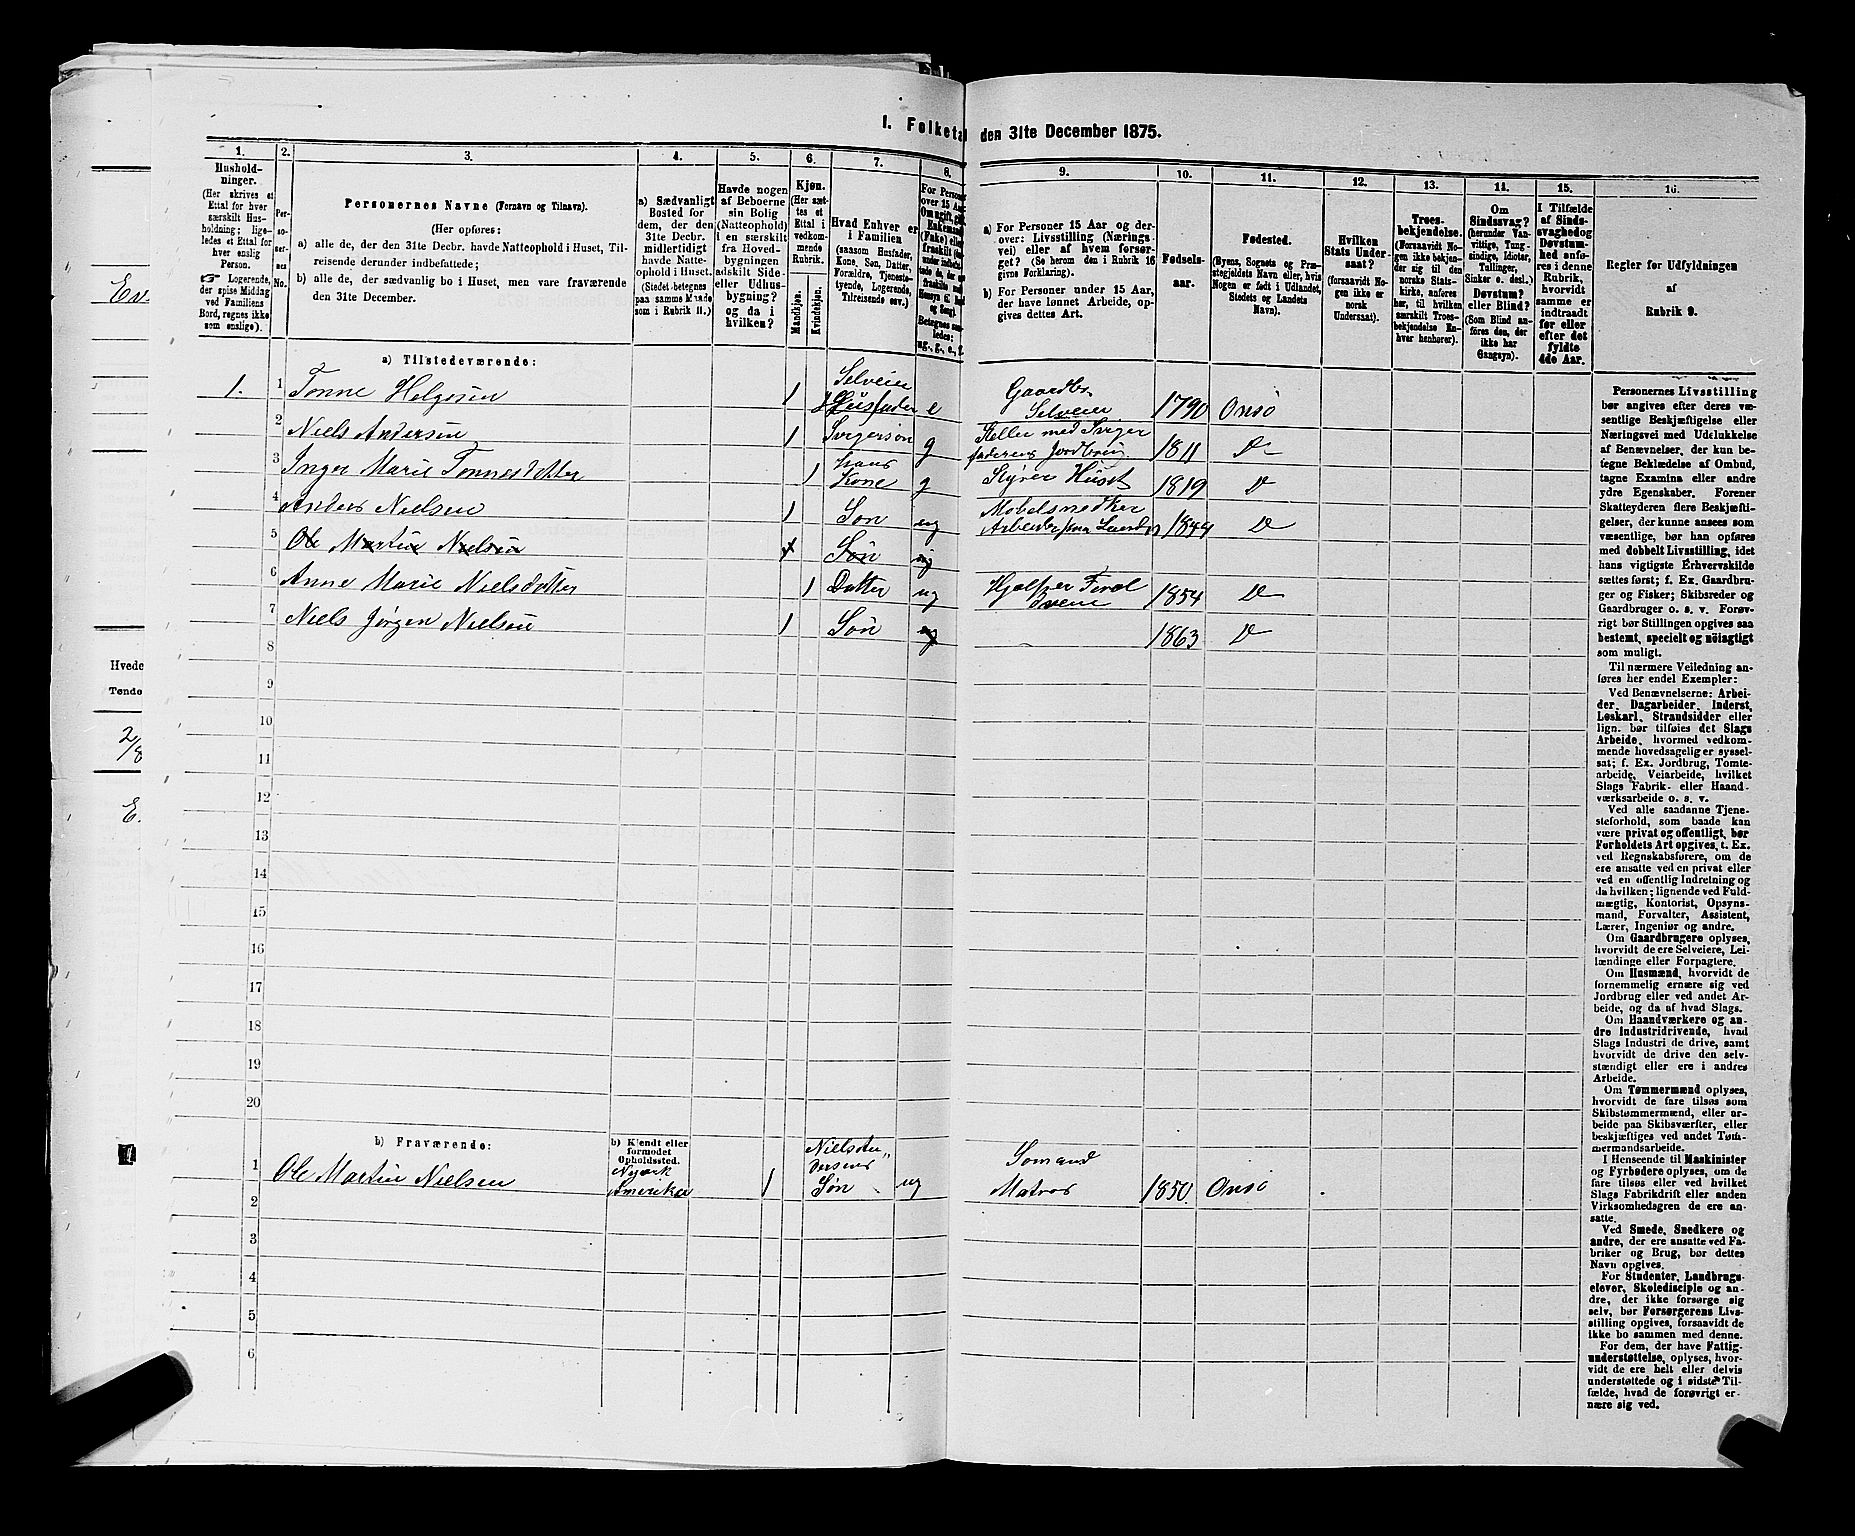 I. Folketal den 31te December 1875.
1.
2.
3.
4.
5.
6.
7.
8.
9.
10.
11.
12.
13.
14.
15.
16.
Hushold-
ninger.
(Her skrives et
Ettal for hver
særskilt Hus-
holdning; lige-
ledes et Ettal for
hver enslig
Person.
☞ Logerende,
der spise Middag
ved Familiens
Bord, regnes ikke
som enslige).
Per-
so-
ner-
nes
No.
Personernes Navne (Fornavn og Tilnavn).
(Her opføres:
a) alle de, der den 31te Decbr. havde Natteophold i Huset, Til-
reisende derunder indbefattede;
b) alle de, der sædvanlig bo i Huset, men vare fraværende
den 31te December.
a) Sædvanligt
Bosted for
dem, der den
31te Decbr.
midlertidigt
havde Natte-
ophold i Huset.
(Stedet betegnes
paa samme Maade
som i Rubrik II.)
Havde nogen
af Beboerne
sin Bolig
(Natteophold)
i en særskilt
fra Hoved-
bygningen
adskilt Side-
eller Udhus-
bygning?
og da i
hvilken?
Kjøn.
(Her sæt-
tes et
Ettal i
vedkom-
mende
Rubrik.
Mandkjøn.
Kvindekjøn.
Hvad Enhver er
i Familien
(saasom Husfader,
Kone, Søn, Datter,
Forældre, Tjeneste-
tyende, Logerende,
Tilreisende osv.)
For Person
over 15 Aar
a) For Personer 15 Aar og der-
over: Livsstilling (Nærings-
vei) eller af hvem forsør-
get? (Se herom den i Rubrik 16
givne Forklaring).
b) For Personer under 15 Aar,
der have lønnet Arbeide, op-
gives dettes Art.
Fødsels-
aar.
Fødested.
(Byens, Sognets og Præ-
stegjeldets Navn eller, hvis
Nogen er født i Udlandet,
Stedets og Landets
Navn).
Hvilken
Stats Under-
saat?
(forsaavidt No-
gen ikke er
norsk
Undersaat).
Troes-
bekjendelse.
(Forsaavidt No-
gen ikke bekjen-
der sig til den
norske Stats-
kirke, anføres
her, til hvilken
særskilt Troes-
bekjendelse En-
hver henhører).
Om
Sindssvag?
(herunder Van-
vittige, Tung-
sindige, Idioter,
Tullinger,
Sinker o. desl.)
Døvstum?
eller Blind?
(Som Blind an-
føres den, der
ikke har
Gangsyn).
I Tilfælde
af Sinds-
svaghed og
Døvstum-
hed anfø-
res i denne
Rubrik,
hvorvidt
samme er
indtraadt
før eller
efter det
fyldte
4de Aar.
Regler for Udfyldningen
af
Rubrik 9.
a) Tilstedeværende:
1. 1 Tønne Helgesen 1 Selveier Husfader e Gaardbr. Selveier 1790 Onsø
2 Niels Andersen 1 Svigersøn g Steller med Sviger faderens Jordbrug 1811 D
3 Inger Marie Tønnesdatter 1 hans Kone g Styrer Huset 1819 D
4 Anders Nielsen 1 Søn ug Møbelsnedker 1844 D
5 Ole Martin Nielsen Søn ug
6 Anne Marie Nielsdatter 1 Datter ug Hjælper Foræl drene 1854 D
7 Niels Jørgen Nielsen 1 Søn ug 1863 D
8
9
10
11
12
13
14
15
16
17
18
19
20
b) Fraværende:
b) Kjendt eller
formodet
Opholdssted.
1 Ole Martin Nielsen Nyørk Amerika 1 Niels An- dersens Søn ug Sømand Matros 1850. Onsø
2
3
4
5
6
Personernes Livsstilling
bør angives efter deres væ-
sentlige Beskjæftigelse eller
Næringsvei med Udelukkelse
af Benævnelser, der kun be-
tegne Beklædelse af Ombud,
tagne Examina eller andre
ydre Egenskaber. Forener
Skatteyderen flere Beskjæfti-
gelser, der kunne ansees som
væsentlige, bør han opføres
med dobbelt Livsstilling, idet
hans vigtigste Erhvervskilde
sættes først; f. Ex. Gaardbru-
ger og Fisker; Skibsreder og
Gaardbruger o. s. v. Forøv-
rigt bør Stillingen opgives saa
bestemt, specielt og nøiagtigt
som muligt.
Til nærmere Veiledning an-
føres her endel Exempler:
Ved Benævnelserne: Arbei-
der, Dagarbeider, Inderst,
Løskarl, Strandsidder eller
lign. bør tilføies det Slags
Arbeide, hvormed vedkom-
mende hovedsagelig er syssel-
sat; f. Ex. Jordbrug, Tomte-
arbeide, Veiarbeide, hvilket
Slags Fabrik- eller Haand-
værksarbeide o. s. v.
Ved alle saadanne Tjene-
steforhold, som baade kan
være privat og offentligt, bør
Forholdets Art opgives, t. Ex.
ved Regnskabsførere, om de
ere ansatte ved en privat eller
ved en offentlig Indretning og
da hvilken; lignende ved Fuld-
mægtig, Kontorist, Opsyns-
mand, Forvalter, Assistent,
Lærer, Ingeniør og andre.
Om Gaardbrugere oplyses,
hvorvidt de ere Selveiere, Lei-
lændinge eller Forpagtere.
Om Husmænd, hvorvidt de
fornemmelig ernære sig ved
Jordbrug eller ved andet Ar-
beide, og da af hvad Slags.
Om Haandværkere og an-
dre Industridrivende, hvad
Slags Industri de drive, samt
hvorvidt de drive den selv-
stændigt eller ere i andres
Arbeide.
Om Tømmermænd oplyses,
hvorvidt de fare tilsøs som
Skibstømmermænd, eller ar-
beide paa Skibsværfter, eller
beskjæftiges ved andet Tøm-
mermandsarbeide.
I Henseende til Maskinister
og Fyrbødere oplyses, om de
fare tilsøs eller ved hvilket
Slags Fabrikdrift eller anden
Virksomhedsgren de ere an-
satte.
Ved Smede, Snedkere og
andre, der ere ansatte ved Fa-
briker og Brug, bør dettes
Navn opgives.
For Studenter, Landbrugs-
elever, Skoledisciple og an-
dre, der ikke forsørge sig
selv, bør Forsørgerens Livs-
stilling opgives, forsaavidt de
ikke bo sammen med denne.
For dem, der have Fattig-
understøttelse, oplyses, hvor-
vidt de ere helt eller delvis
understøttede og i sidste Til-
fælde, hvad de forøvrigt er-
nære sig ved.
Hvede
Tønde
2/8
E.